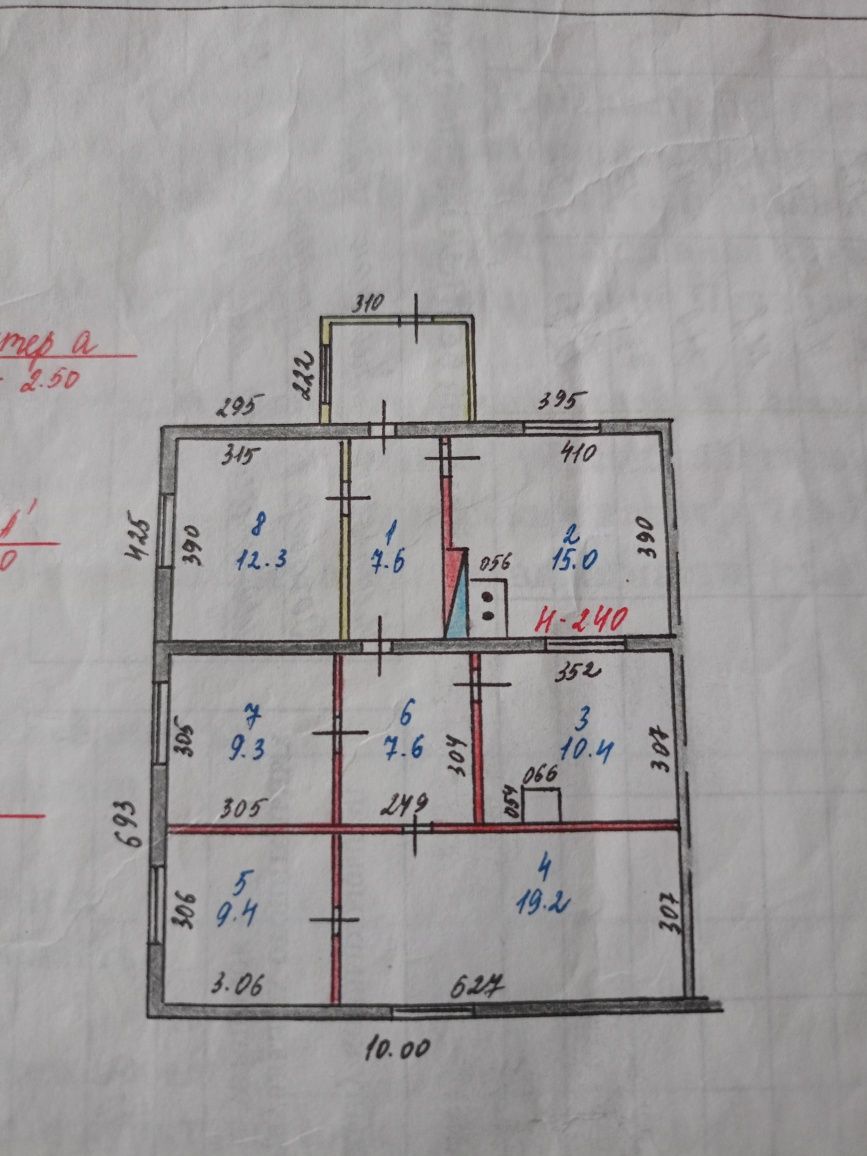 310
222
тер а
2.50
295
395
315
410
425
390
8
12.3
1
7.6
2
15.0
390
056
Н-240
352
305
7
9.3
6
7.6
304
3
10.4
307
066
054
305
249
693
306
5
9.4
4
19.2
307
3.06
627
10.00